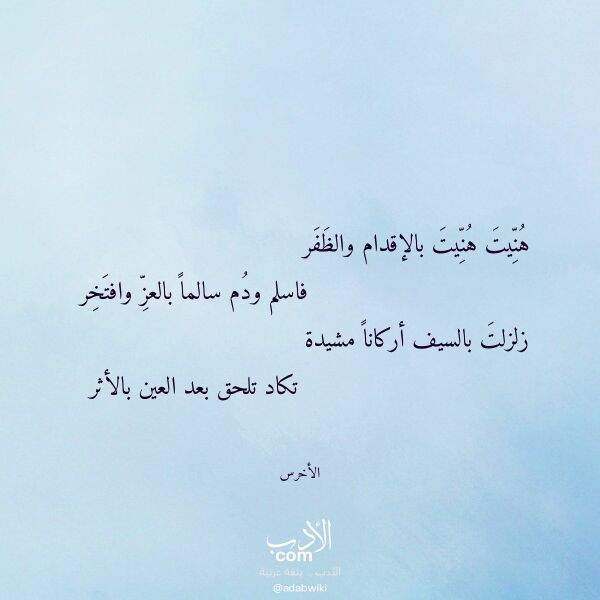 هُنِّيتَ هُنِّيتَ بالإقدام والظَفَر
فاسلم ودُم سالماً بالعزِّ وافتَخِر
زلزلتَ بالسيف أركاناً مشيدة
تكاد تلحق بعد العين بالأثر
الأخرس
الأدب
com
الأدب .. بلغة عربية
@adabwiki